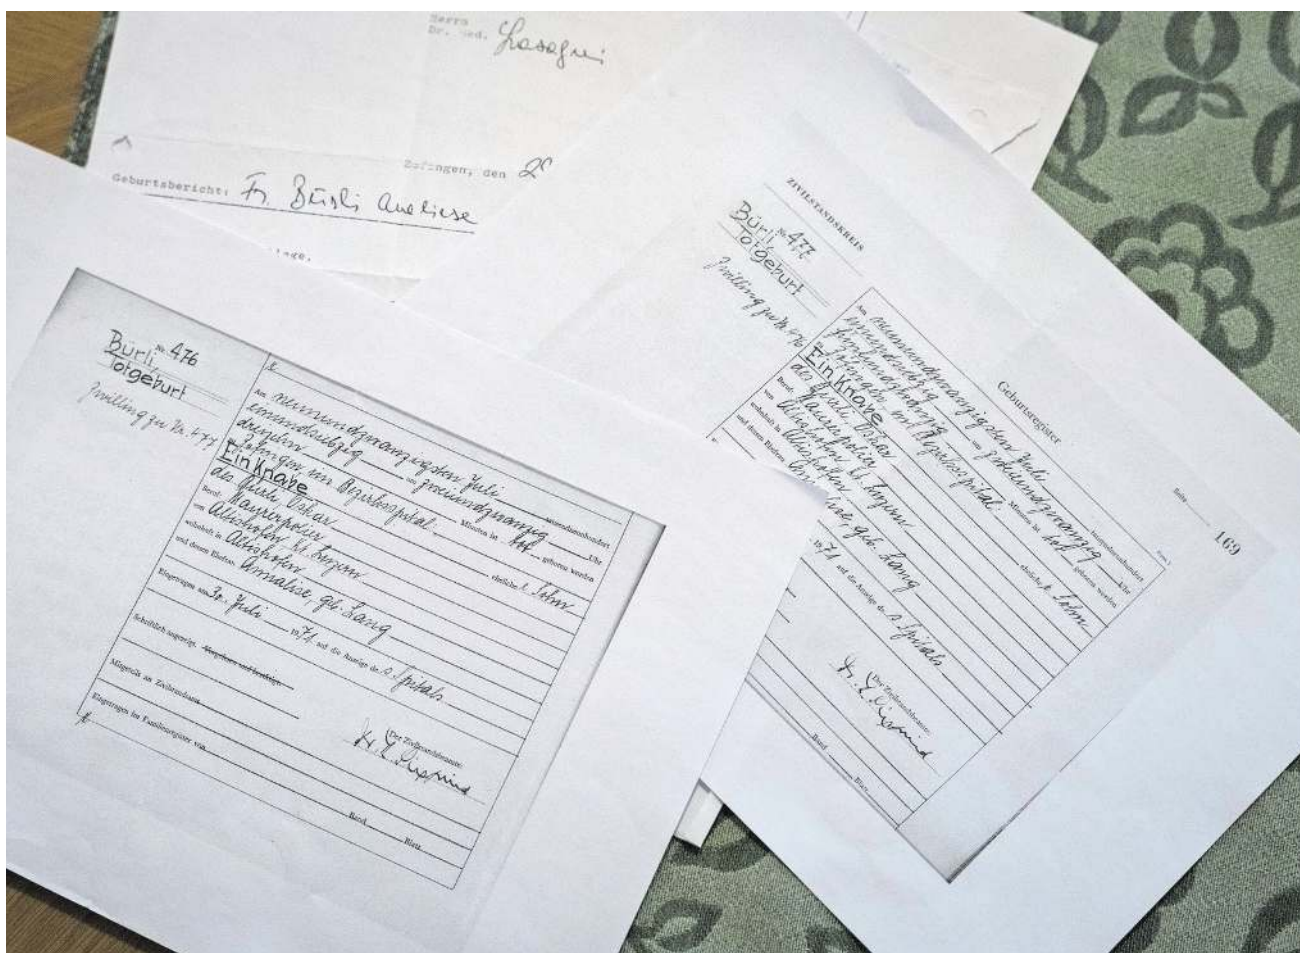 Herrn
Dr. med.
Zofingen, den 2
Geburtsbericht: Fr. Bürli Aneliese
lage.
Bürli,
№ 476
Totgeburt
Zwilling zu Nr. 477
Am neunundzwanzigsten Juli tausendneunhundert
einundsiebzig um zweiundzwanzig Uhr
dreizehn Minuten ist tot geboren worden
Zofingen im Bezirksspital
Ein Knabe ehelicher Sohn
des Bürli Oskar
Beruf: Maurerpolier
von Altishofen, Kt. Luzern
wohnhaft in Altishofen
und dessen Ehefrau: Annaliese, geb. Lang
Eingetragen am 30. Juli 1971 auf die Anzeige des Spitals
Schriftlich angezeigt.
Der Zivilstandsbeamte:
Mitgeteilt an Zivilstandsamt
Eingetragen im Familienregister von Band Blatt
ZIVILSTANDSKREIS
Geburtsregister
Seite 169
Bürli,
№ 477
Totgeburt
Zwilling zu Nr. 476
Am neunundzwanzigsten Juli tausendneunhundert
einundsiebzig um zweiundzwanzig Uhr
fünfundzwanzig Minuten ist tot geboren worden
in Zofingen im Bezirksspital
Ein Knabe ehelicher Sohn
des Bürli Oskar
Beruf: Maurerpolier
von Altishofen, Kt. Luzern
wohnhaft in Altishofen
und dessen Ehefrau geb. Lang
1971 auf die Anzeige des Spitals
Der Zivilstandsbeamte:
Band Blatt